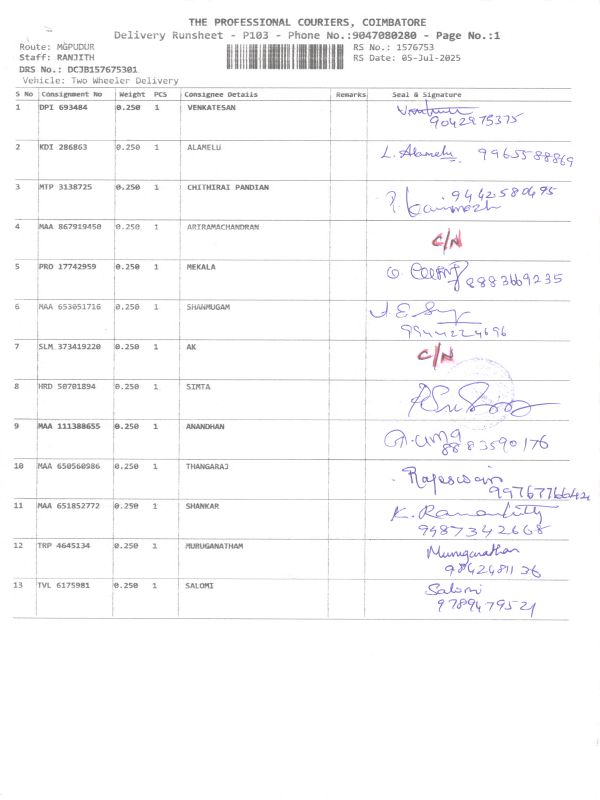 THE PROFESSIONAL COURIERS, COIMBATORE
Delivery Runsheet - P103 - Phone No.:9047080280 - Page No.:1
Route: MGPUDUR RS No.: 1576753
Staff: RANJITH RS Date: 05-Jul-2025
DRS No.: DCJB157675301
Vehicle: Two Wheeler Delivery
S No Consignment No Weight PCS Consignee Details Remarks Seal & Signature
1 DPI 693484 0.250 1 VENKATESAN
9042975375
2 KDI 286863 0.250 1 ALAMELU L. Alamelu 9965588869
3 MTP 3138725 0.250 1 CHITHIRAI PANDIAN 9442580495
4 MAA 867919450 0.250 1 ARIRAMACHANDRAN C/N
5 PRO 17742959 0.250 1 MEKALA 8883669235
6 MAA 653051716 0.250 1 SHANMUGAM
9944224696
7 SLM 373419220 0.250 1 AK C/N
8 HRD 50701894 0.250 1 SIMTA
9 MAA 111388655 0.250 1 ANANDHAN
8883590176
10 MAA 650560986 0.250 1 THANGARAJ Rajeswari
11 MAA 651852772 0.250 1 SHANKAR K. Ramankutty
9487342668
12 TRP 4645134 0.250 1 MURUGANATHAM Muruganathan
9842481136
13 TVL 6175981 0.250 1 SALOMI Salomi
9789479521